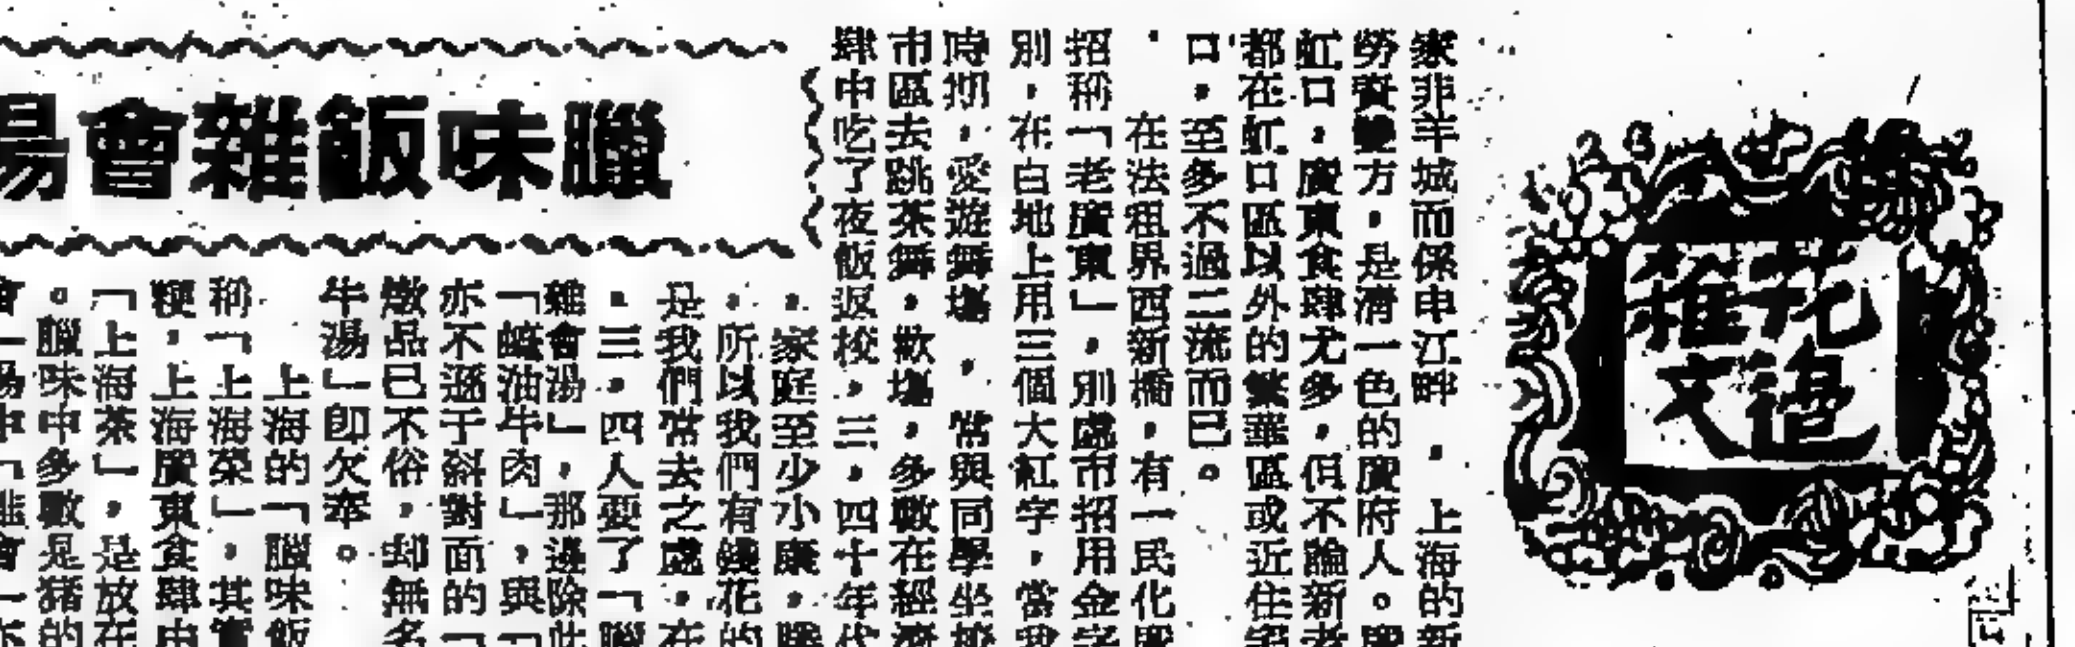 花邊
雜文
臘味飯雜會湯
家非羊城而係申江畔，上海的新
勞資雙方，是清一色的廣府人。
虹口，廣東食肆尤多，但不論新老
都在虹口區以外的繁華區或近住宅
口，至多不過二流而已。
在法租界西新橋，有一民化
招稱「老廣東」，別處市招用金字
別，在白地上用三個大紅字，當我
時期，愛遊舞場，常與同學坐
市區去跳茶舞，散場，多數在經濟
肆中吃了夜飯返校，三，四十年代
，家庭至少小康，
，所以我們有錢花的
是我們常去之處，在
，三，四人要了「臘
雜會湯」，那邊除此
「蠔油牛肉」，與「
亦不遜于斜對面的「
燉品已不俗，却無名
牛湯」卽欠奉。
上海的「臘味飯
稱「上海菜」，其實
粳，上海廣東食肆中
「上海茶」，是放在
。臘味中多數是豬的